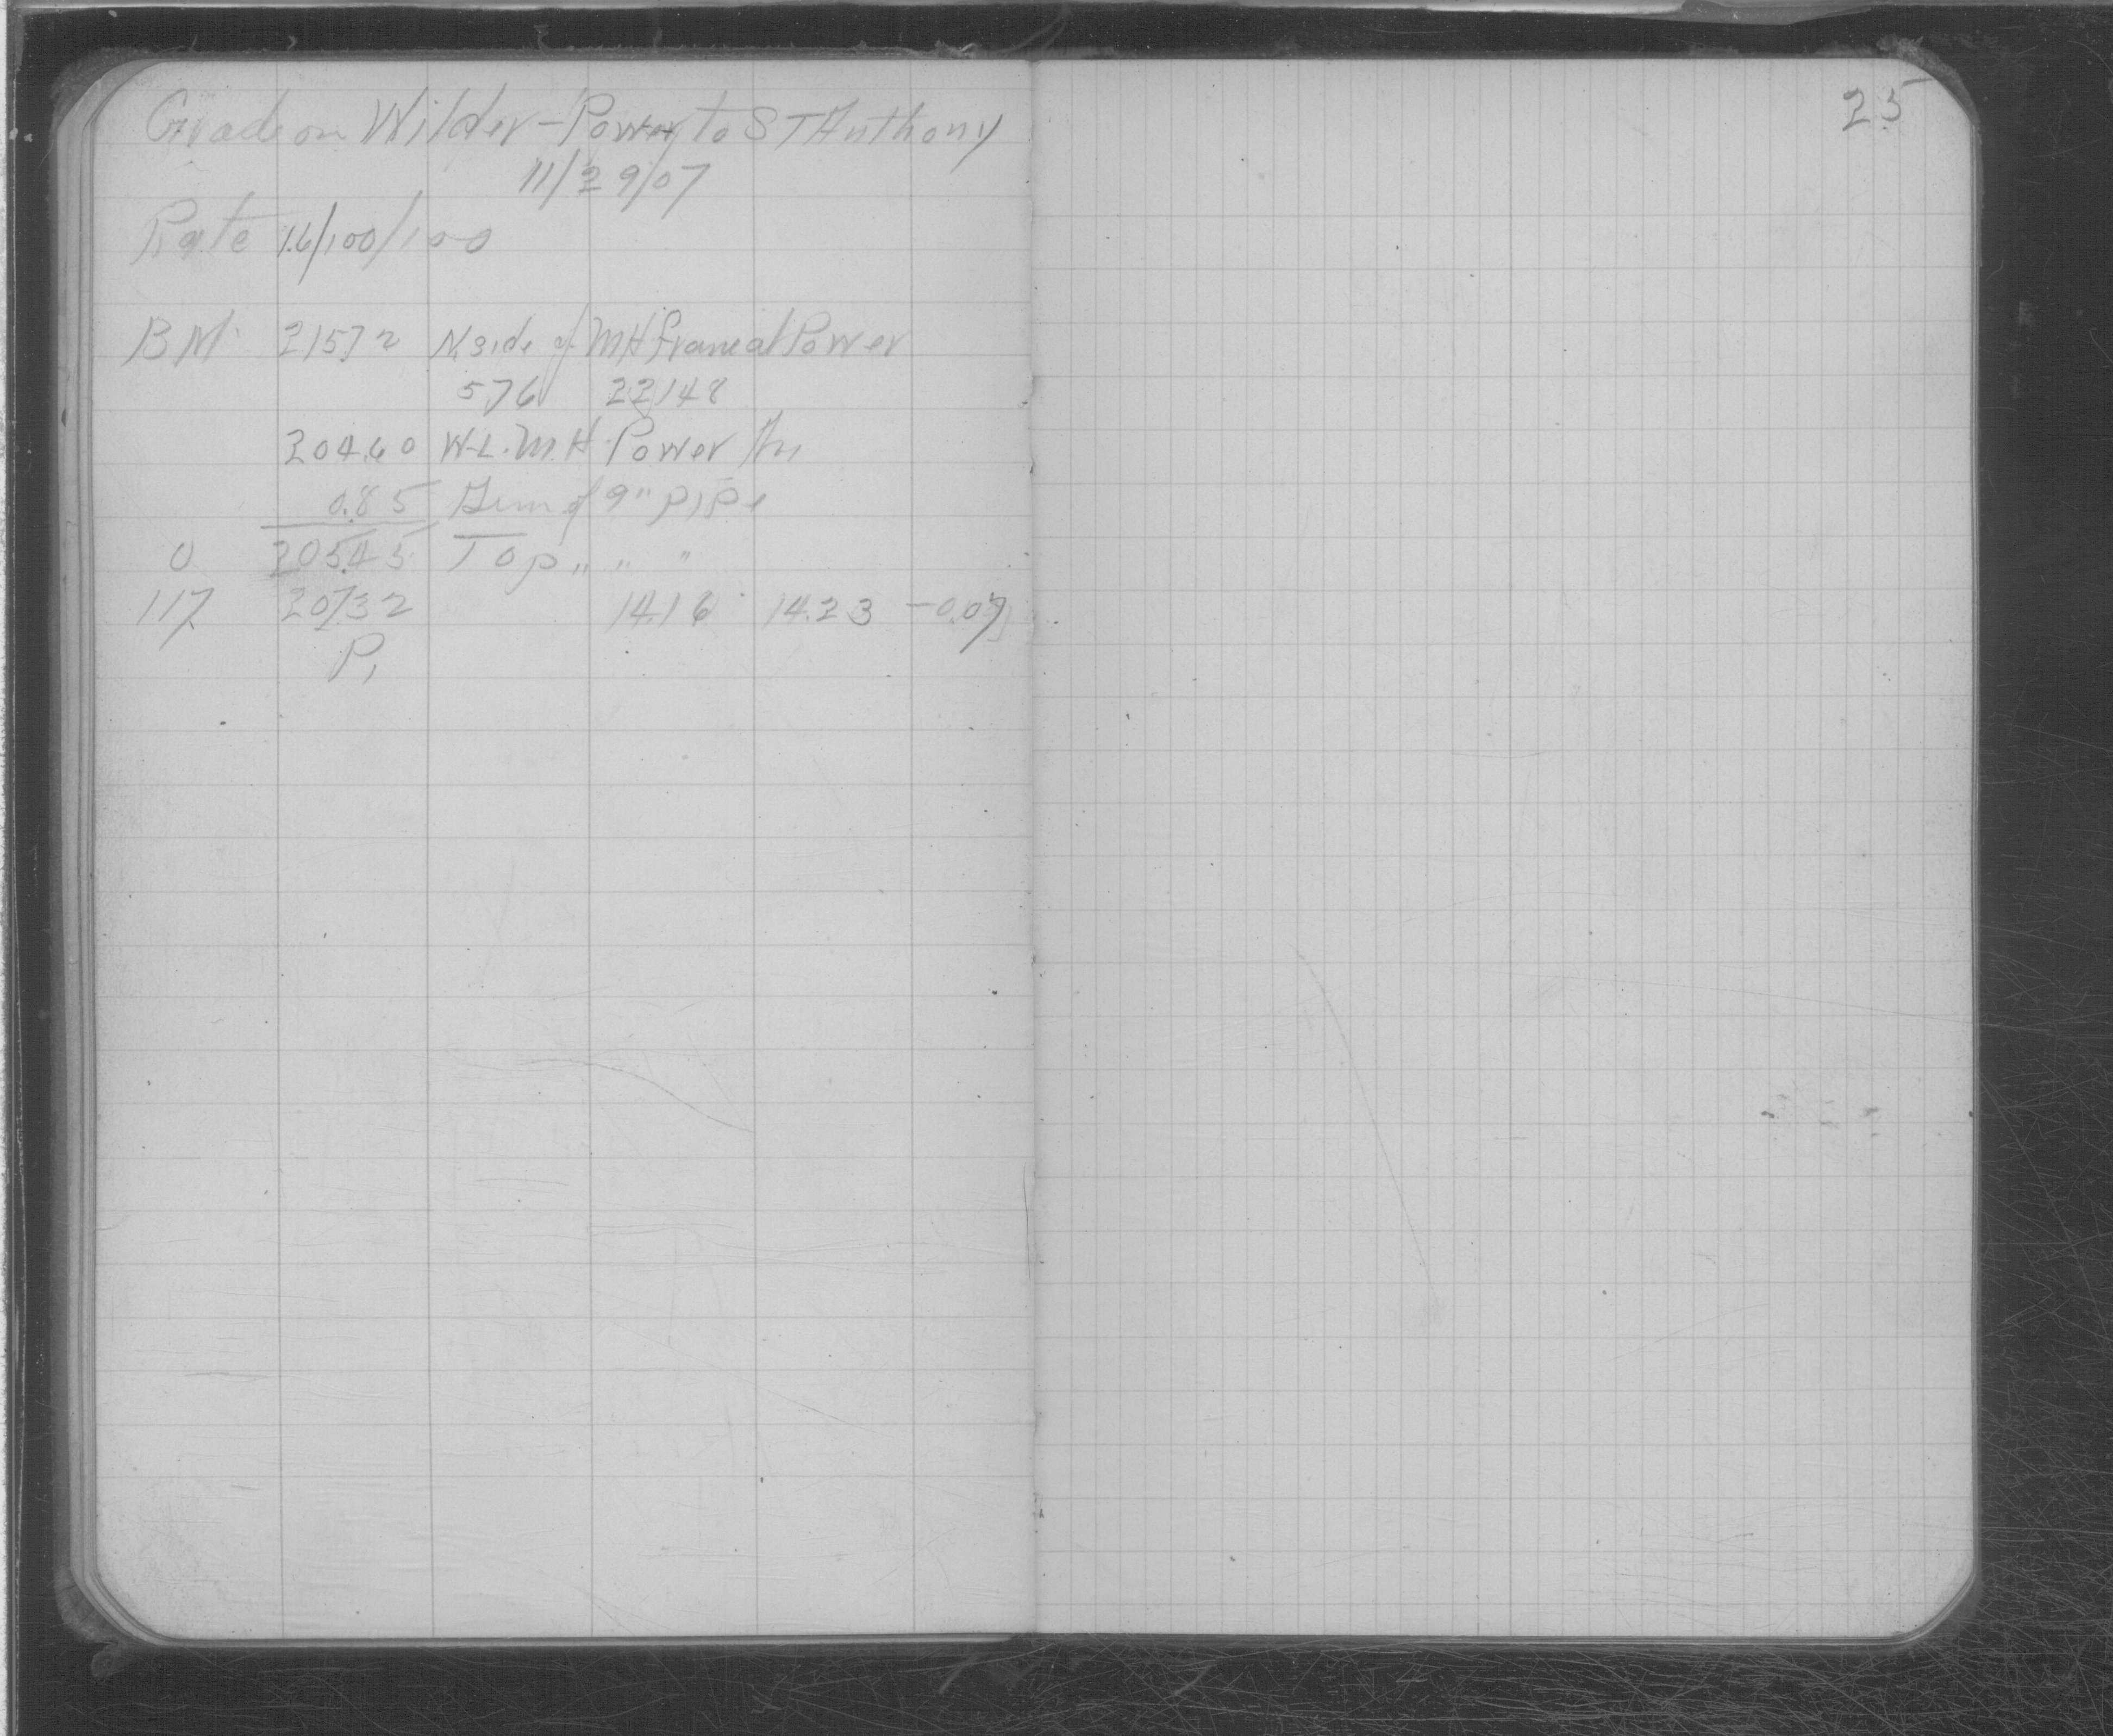 Grade on Wilder - Power to ST Anthony
11/29/07
Rate 1.6/100/100
BM. 215.72 N side of MH frame at Power
5.76 221.48
204.60 W.L. M.H. Power
0.85 of 9" pipe
0 205.45 Top " " "
117. 207.32 14.16 14.23 -0.07
P,
25